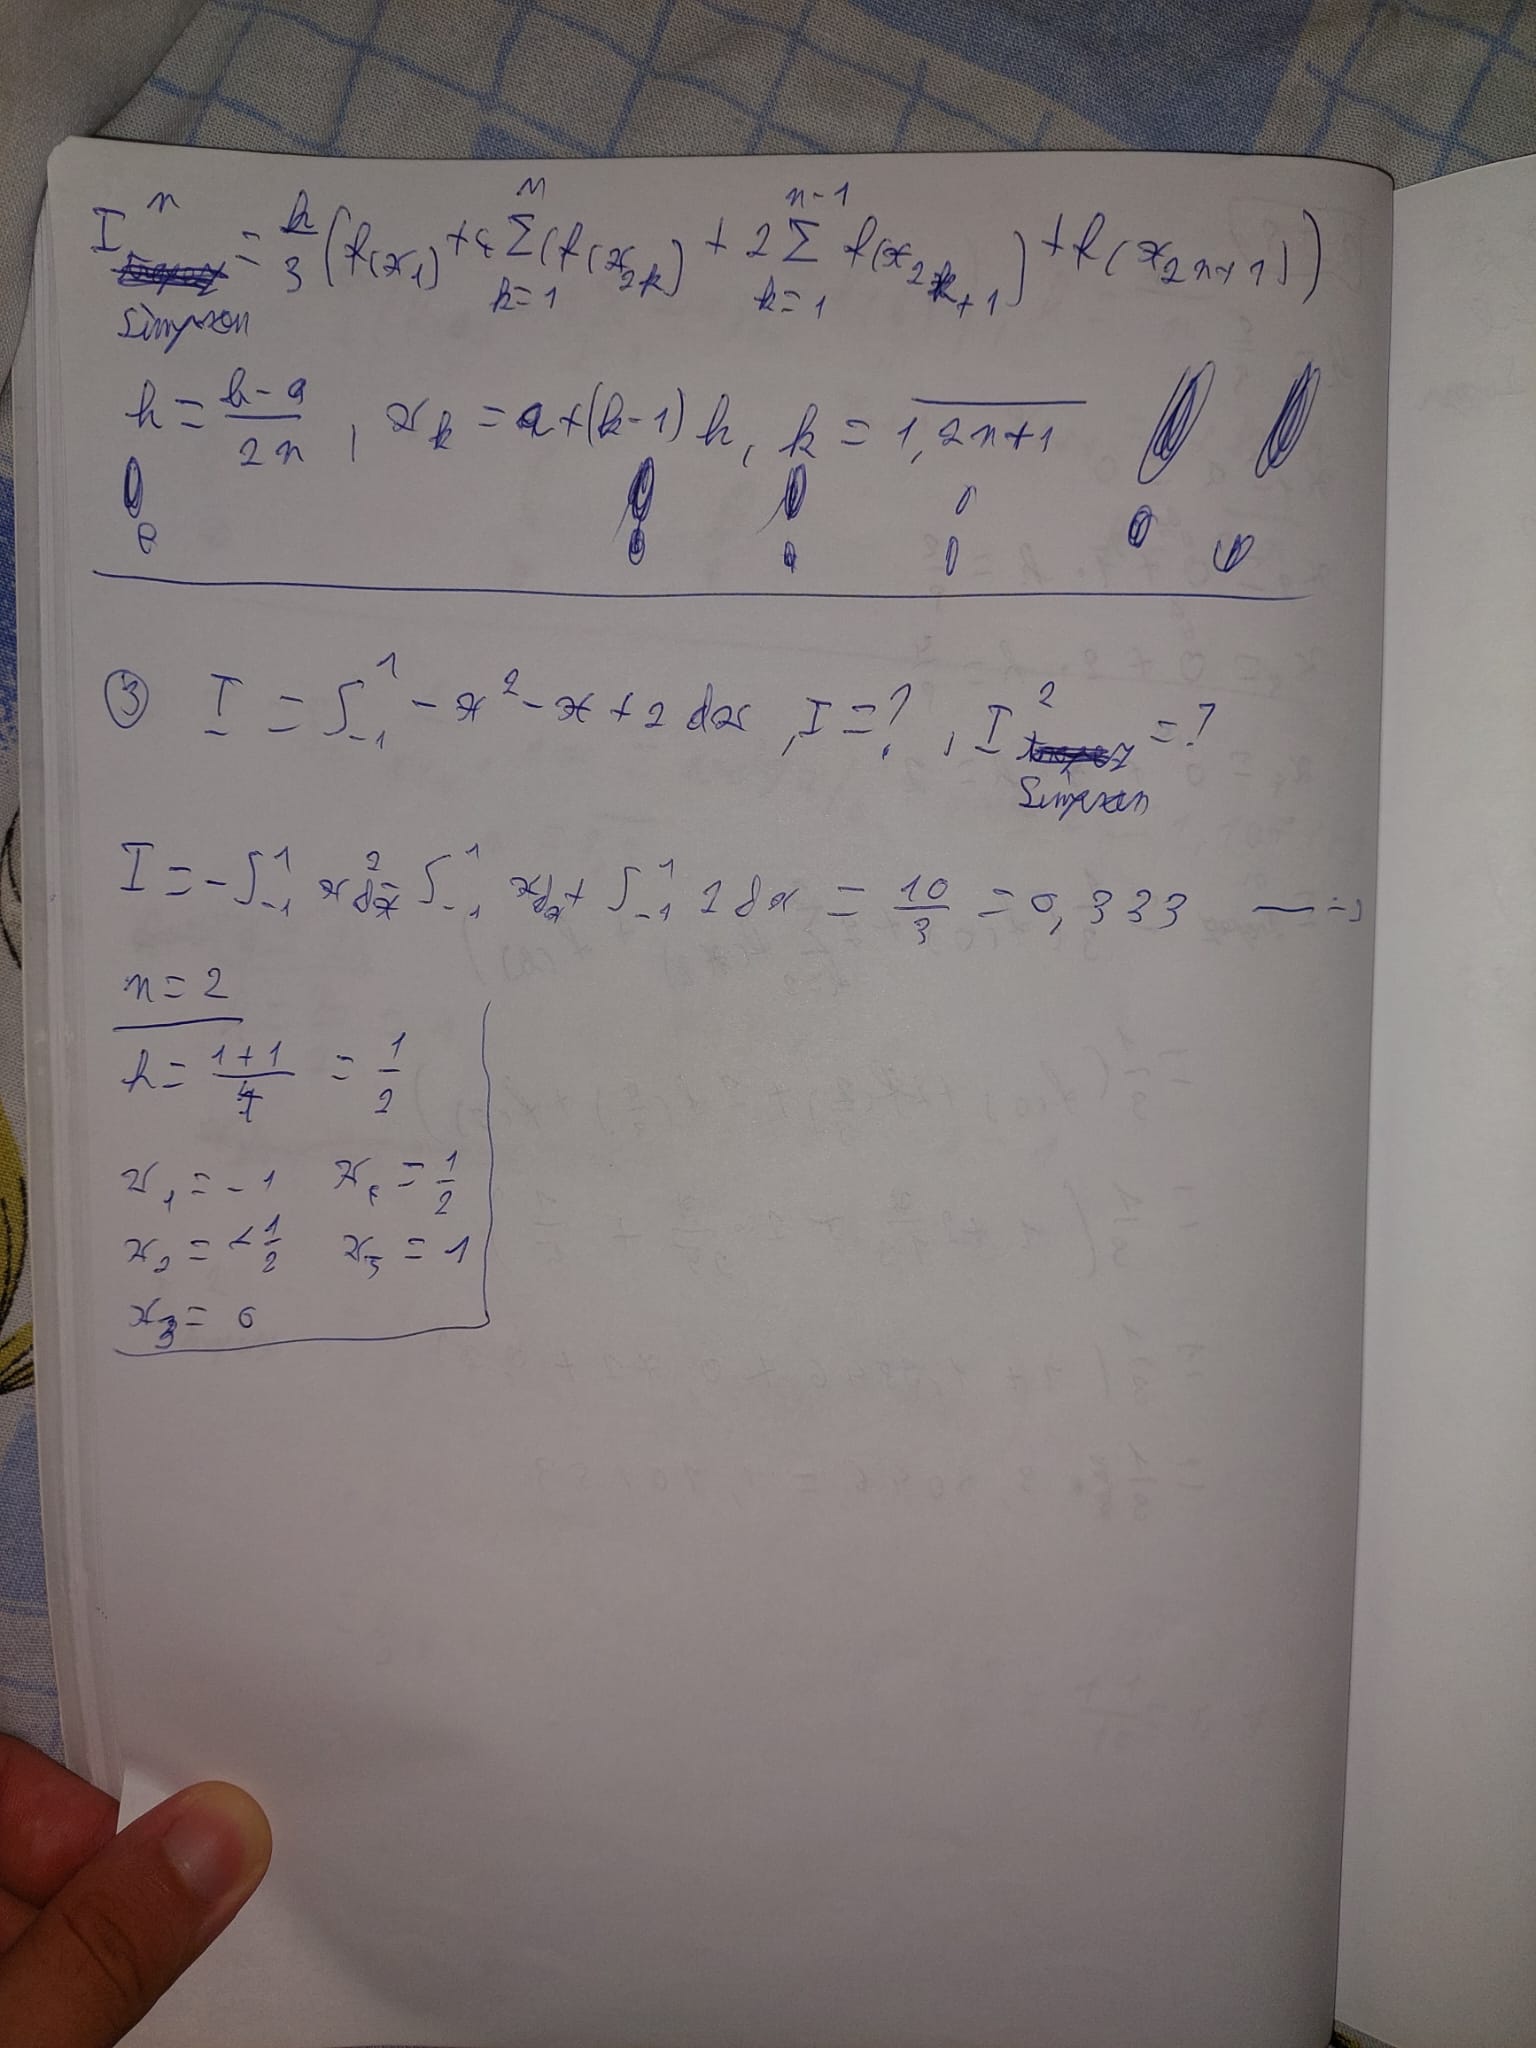 I^n Simpson = h/3 (f(x_1) + 4 Σ_{k=1}^{n} (f(x_{2k}) + 2 Σ_{k=1}^{n-1} f(x_{2k+1}) + f(x_{2n+1}))
h = b-a/2n, x_k = a+(k-1)h, k = \overline{1,2n+1}
③ I = ∫_{-1}^{1} -x^2-x+2 dx, I=?, I^2 Simpson =?
I = -∫_{-1}^{1} x^2dx - ∫_{-1}^{1} xdx + ∫_{-1}^{1} 2dx = 10/3 = 0,333
n=2
h = 1+1/4 = 1/2
x_1 = -1 x_4 = 1/2
x_2 = -1/2 x_5 = 1
x_3 = 0